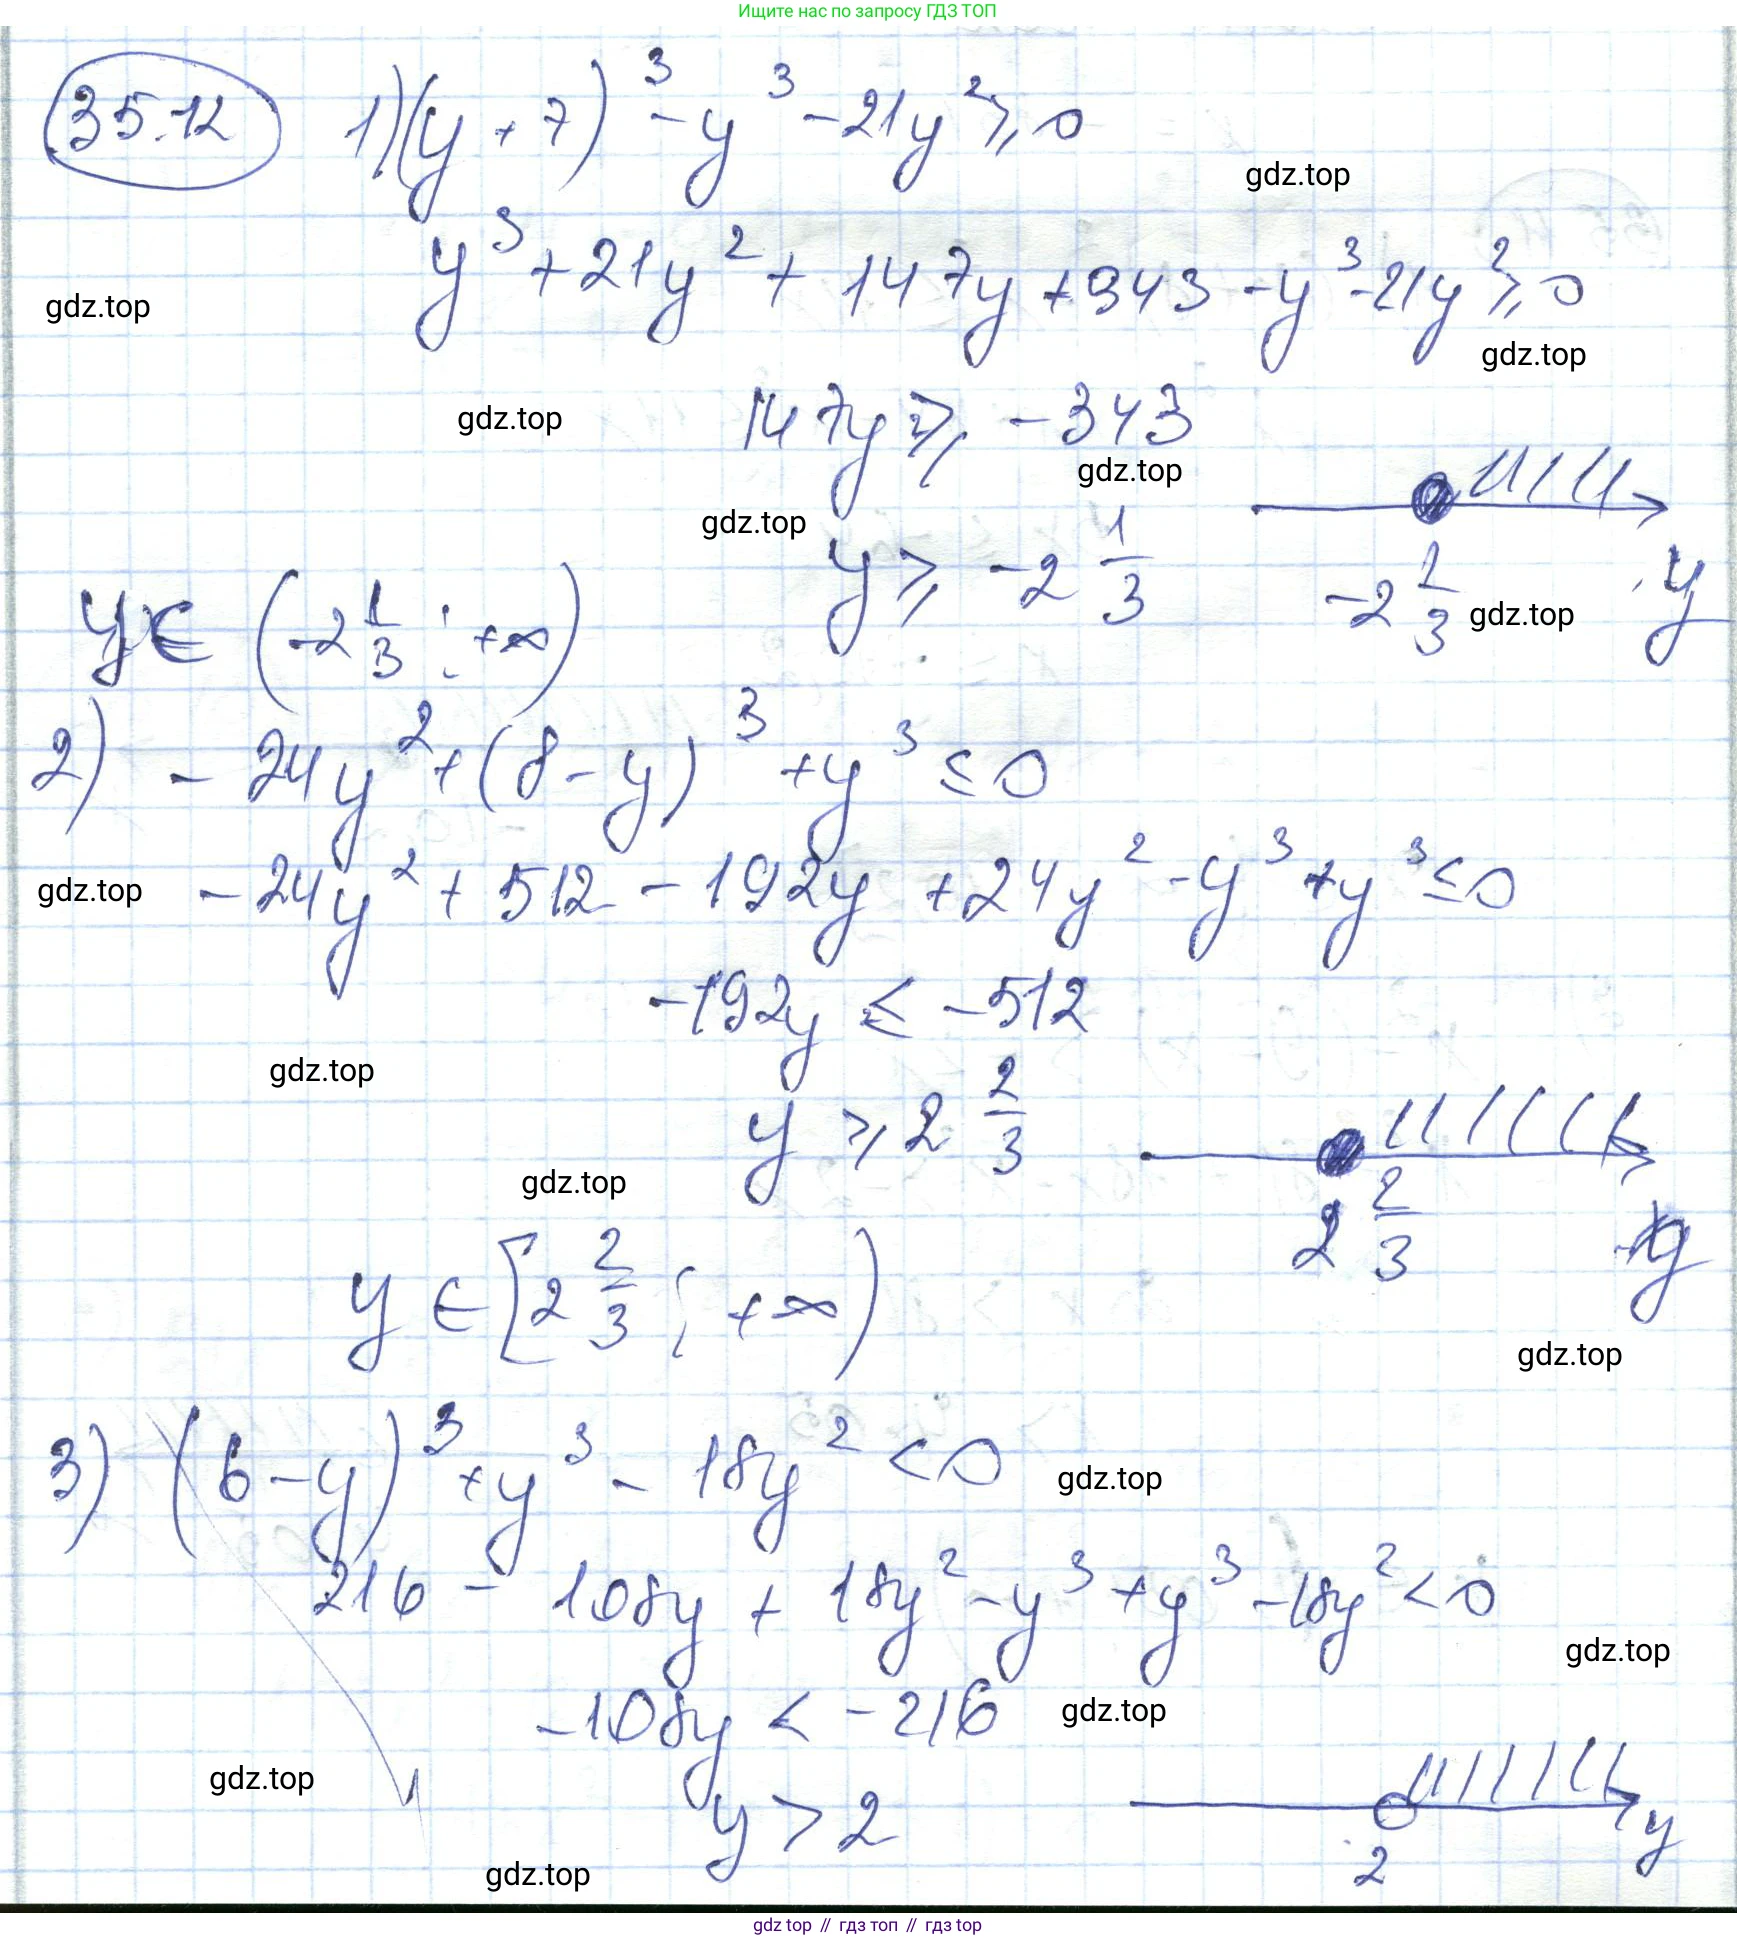 Ищите нас по запросу ГДЗ ТОП
35.12 1) (y + 7)³ - y³ - 21y² ⩾ 0
gdz.top
y³ + 21y² + 147y + 343 - y³ - 21y² ⩾ 0
gdz.top
gdz.top
147y ⩾ -343
gdz.top
gdz.top
gdz.top
y ⩾ -2 1/3
-2 1/3 y
gdz.top
y ∈ (-2 1/3 ; +∞)
2) - 24y² + (8 - y)³ + y³ ≤ 0
gdz.top
- 24y² + 512 - 192y + 24y² - y³ + y³ ≤ 0
-192y ≤ -512
gdz.top
y ⩾ 2 2/3
gdz.top
2 2/3 y
y ∈ [2 2/3 ; +∞)
gdz.top
3) (6 - y)³ + y³ - 18y² < 0
gdz.top
216 - 108y + 18y² - y³ + y³ - 18y² < 0
gdz.top
-108y < -216
gdz.top
gdz.top
y > 2
2 y
gdz.top
gdz top // гдз топ // гдз top